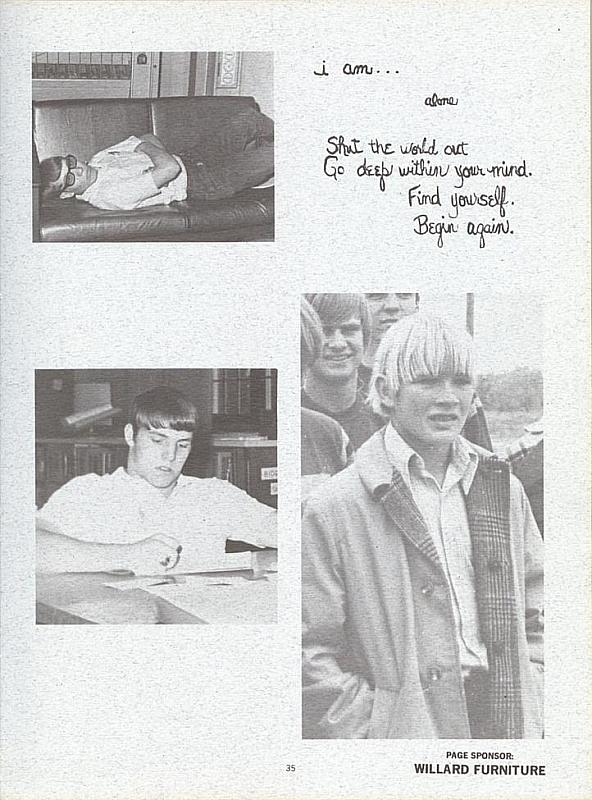 i am...
alone
Shut the world out
Go deep within your mind.
Find yourself.
Begin again.
35
PAGE SPONSOR:
WILLARD FURNITURE